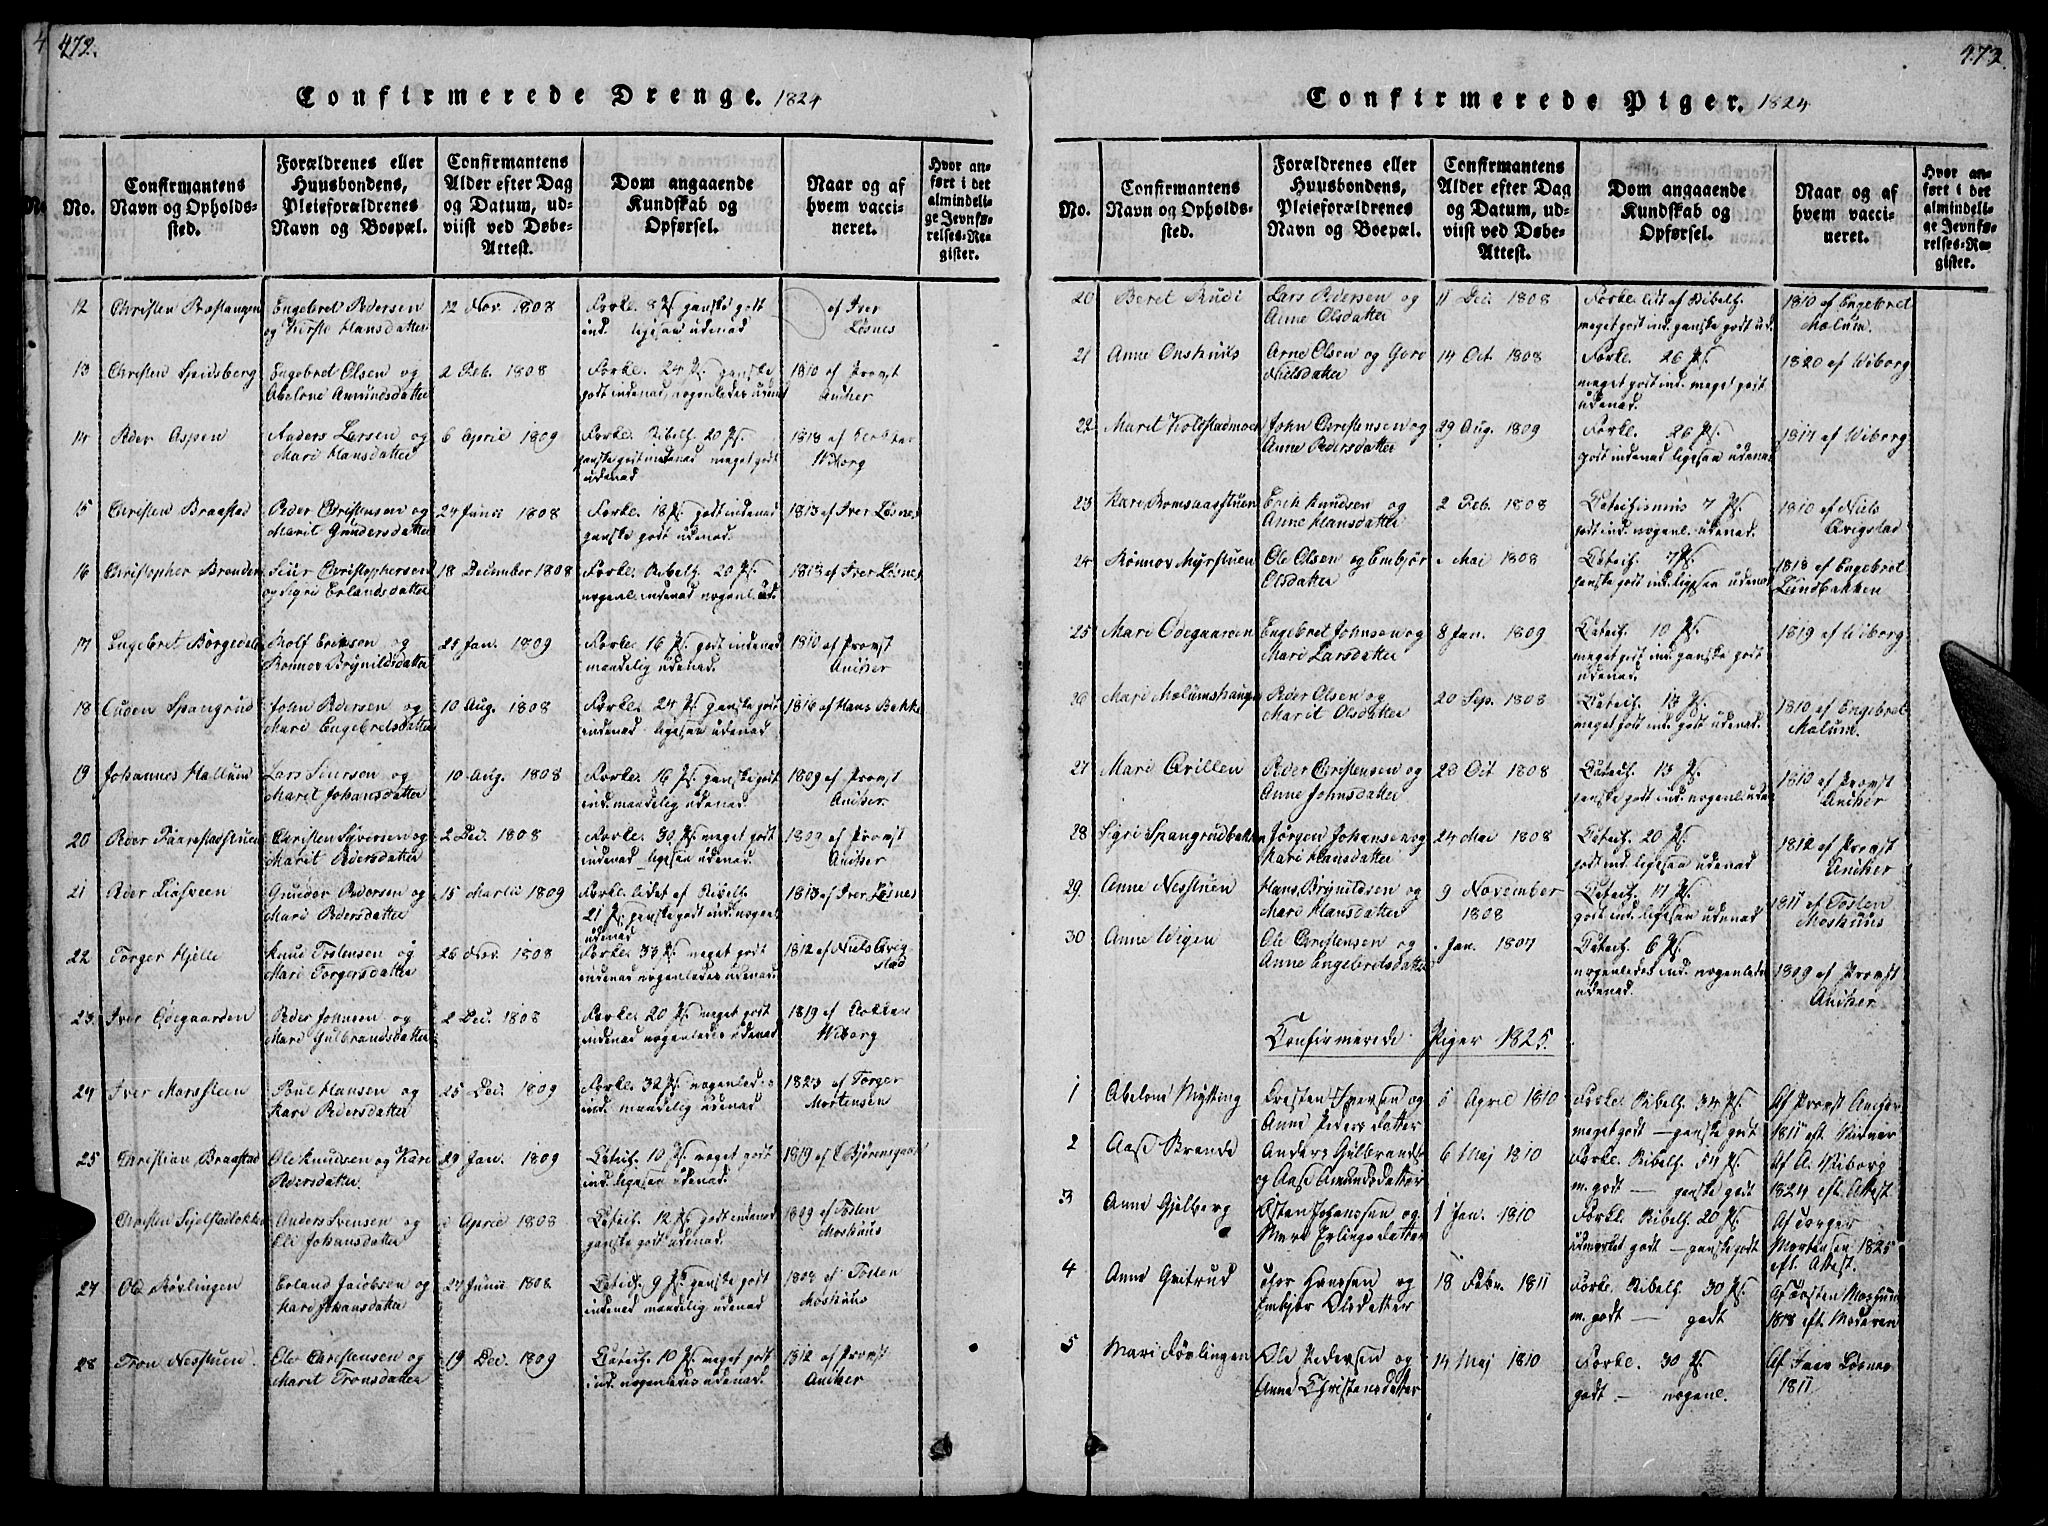 472.
Confirmerede Drenge. 1824
No.
Confirmantens
Navn og Opholds-
sted.
Forældrenes eller
Huusbondens,
Pleieforældrenes
Navn og Boepæl.
Confirmantens
Alder efter Dag
og Datum, ud-
viist ved Døbe-
Attest.
Dom angaaende
Kundskab og
Opførsel.
Naar og af
hvem vacci-
neret.
Hvor an-
ført i det
almindeli-
ge Jevnfø-
relses-Re-
gister.
12 Engebret Pedersen 12 Nov. 1808 Forkl. ganske godt af Iver
ind. ligesaa udenad
13 Engebret Olsen og 2 Feb. 1808 Forkl. 24 ganske 1810 af Provst
Abelone Amundsdatter godt indenad, nogenledes udenad
14 Peder Aspen Anders Larsen og 6 April 1809 Forkl. Bibelh. 20 1818 af
Mari Hansdatter ganske godt indenad meget godt Wiborg
udenad
15 Christen Braastad Peder Christensen og 24 Junii 1808 Forkl. 18 godt indenad 1813 af Iver
Marit ganske godt udenad.
16 Christopher Brænden Siur Christophersen 18 December 1808 Forkl. Bibelh. 20 1813 af Iver
og Sigri Erlandsdatter nogenl. indenad nogenl. ud.
17 Engebret Rolf Eriksen og 25 Jan. 1809 Forkl. 16 godt indenad 1810 af Provst
Brynildsdatter maadelig udenad.
18 Spangrud John Pedersen og 10 Aug. 1808 Forkl. 24 ganske godt af Hans Bakke
Mari Engebretsdatter indenad ligesaa udenad
19 Johannes Hallum Lars Siursen og 10 Aug. 1808 Forkl. 16 ganske godt 1809 af Provst
Marit Johansdatter ind. maadelig udenad
20 Peder Christen Syversen og 2 Dec. 1808 Forkl. 30 meget godt 1809 af Provst
Marit Pedersdatter indenad ligesaa udenad.
21 Peder Liasveen Gunder Pedersen og 15 Martii 1809 Forkl. lidet af Bibelh. 1813 af Iver
Mari Pedersdatter 21 ganske godt ind. nogenl.
udenad
22 Torger Hjelle Knud Tostensen og 26 Nov. 1808 Forkl. 33 meget godt 1812 af Niels
Mari Torgersdatter indenad nogenledes udenad.
23. Iver Odegaarden Peder Johnsen og 2 Dec. 1808 Forkl. 20 meget godt 1819 af
Mari Gulbrandsdatter indenad nogenledes udenad Wiborg
24 Iver Poul Hansen og 25 Dec. 1809 Forkl. 32 nogenled. 1823 af Torger
Kari Pedersdatter ind. maadelig udenad Mortensen
25 Christian Braastad Ole Knudsen og Kari 29 Jan. 1809 Catech. 10 meget godt 1819 af
Pedersdatter ind. ligesaa udenad.
Christen Anders Svensen og April 1808 Catech. 12 godt indenad 1809 af Tosten
Eli Johansdatter ganske godt udenad. Moshuus
27 Ole Røvlingen Erland Jacobsen og 27 Junii 1808 Catech. 9 ganske godt af Tosten
Kari Johansdatter indenad maadelig udenad Moshuus
28 Tron Nesstuen Ole Christensen og 19 Dec. 1809 Catech. 10 meget godt 1812 af Provst
Marit Tronsdatter ind. nogenledes udenad.
473.
Confirmerede Piger. 1824
No.
Confirmantens
Navn og Opholds-
sted.
Forældrenes eller
Huusbondens,
Pleieforældrenes
Navn og Boepæl.
Confirmantens
Alder efter Dag
og Datum, ud-
viist ved Døbe-
Attest.
Dom angaaende
Kundskab og
Opførsel.
Naar og af
hvem vacci-
neret.
Hvor an-
ført i det
almindeli-
ge Jevnfø-
relses-Re-
gister.
20 Beret Rudi Lars Pedersen og 11 Dec. 1808 Forkl. lidt af Bibelh. 1810 af Engebret
Anne Olsdatter meget godt ind. ganske godt ud. Molum.
21 Anne Onshuus Arne Olsen og Goro 14 Oct. 1808 Forkl. 26 1820 af Wiborg
Nielsdatter meget godt ind. meget godt
udenad.
22 Marit Kolstadmoen John Christensen og 29 Aug. 1809 Forkl. 26 1817 af Wiborg
Anne Pedersdatter godt indenad ligesaa udenad
23 Kari Romsaasstuen Erik Knudsen og 2 Feb. 1808 Catechismus 7 1810 af Niels
Anne Hansdatter godt ind. nogenl. udenad.
24 Rønnov Myrstuen Ole Olsen og Embjør Mai 1808 Catech. 7 1818 af Engebret
Olsdatter ganske godt ind. ligesaa udenad Lundbakken
25 Mari Odegaarden Engebret Johnsen og 8 Jan. 1809 Catech. 10 1819 af Wiborg
Mari Larsdatter meget godt ind. ganske godt
udenad.
26 Mari Molumshaugen Peder Olsen og 20 Sep. 1808 Catech. 13 1810 af Engebret
Marit Olsdatter meget godt ind. godt udenad. Molum.
27 Mari Qvillen Peder Christensen og 20 Oct. 1808 Catech. 13 1810 af Provst
Anne Johnsdatter ganske godt ind. nogenl. udenad
28 Sigri Spangrudbakken Jørgen Johansen og 24 Mai 1808 Catech. 20 1812 af Provst
Kari Hansdatter godt ind. ligesaa udenad
29. Anne Nesstuen Hans Brynildsen og 9 November Catech. 17 1811 af Tosten
Mari Hansdatter 1808 godt ind. ligesaa udenad Moshuus
30 Anne Wigen Ole Christensen og Jan. 1807 Catech. 6 1809 af Provst
Anne Engebretsdatter nogenledes ind. nogenledes
udenad.
Confirmerede Piger 1825.
1 Abeloni Mytting Cresten Iversen og 5 April 1810 Forkl. Bibelh. 34 Af Provst
Anne Pedersdatter meget godt — ganske godt 1811 eft.
2 Aase Brande Anders Gulbrands. 6 Maj 1810 Forkl. Bibelh. 54 Af A. Wiborg
og Aase Amundsdatter m. godt — ganske godt 1824 eft. Attest.
3 Anne Gjelberg Østen Johanssen og 1 Jan. 1810 Forkl. Bibelh. 20 Af Torger
Mari Erlingsdatter udmerket godt — ganske godt Mortensen 1825
eft. Attest.
4 Anne Gritrud Thor Hanssen og 18 Febr. 1811 Forkl. Bibelh. 30 Af Tosten Moshuus
Embjør Olsdatter m. godt — godt 1818 eft. Moderen
5 Mari Rövlingen Ole Pedersen og 14 Maj 1810 Forkl. 30 Af Iver
Anne Christensdatter godt — nogenl. 1811